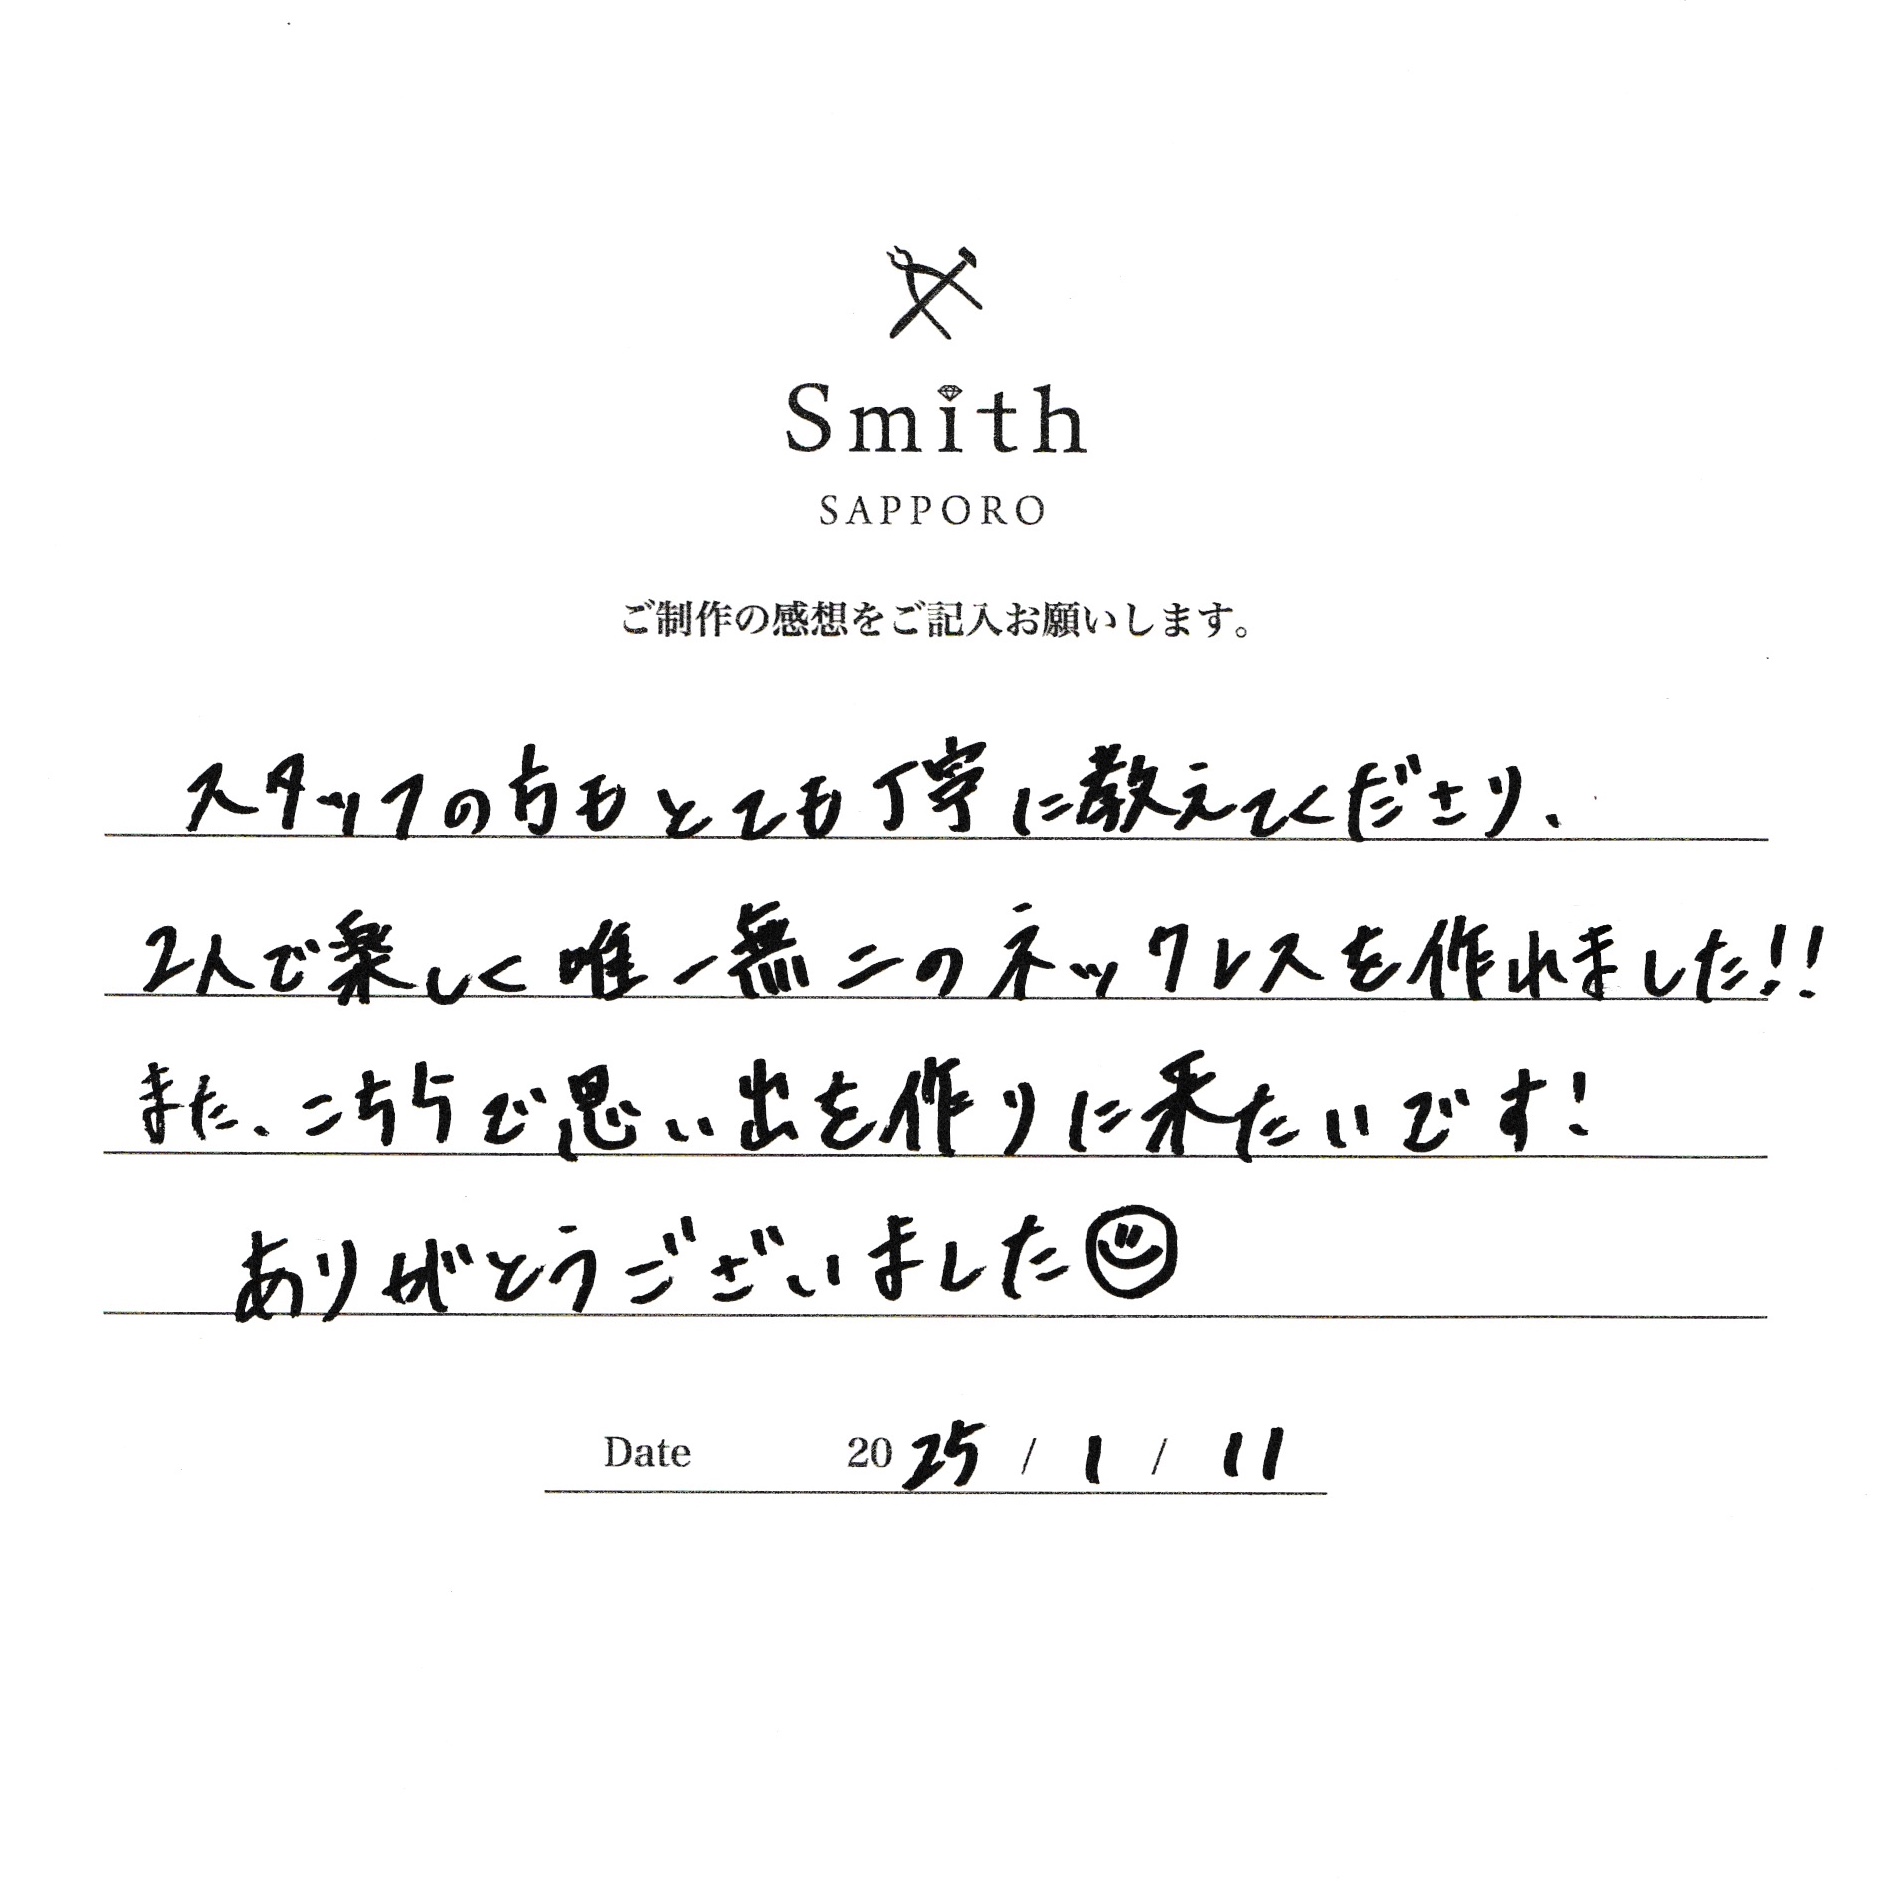 Smith
SAPPORO
ご制作の感想をご記入お願いします。
スタッフの方もとても丁寧に教えてくださり、
2人で楽しく唯一無二のネックレスを作れました!!
また、こちらで思い出を作りに来たいです!
ありがとうございました
Date 2025 / 1 / 11